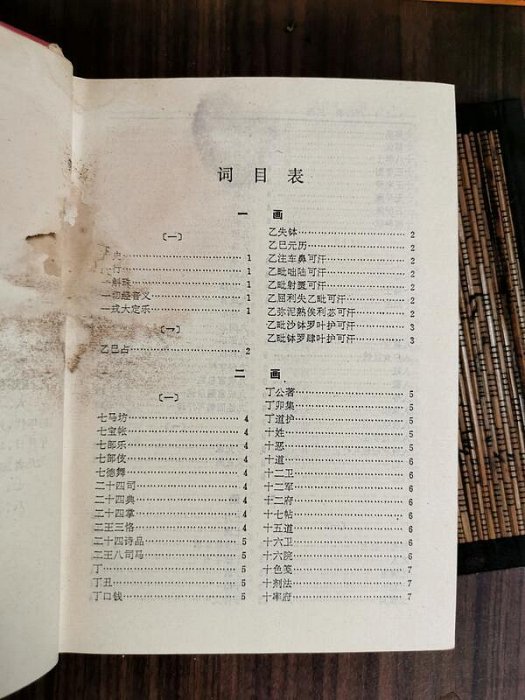 词目表
一画
〔一〕
史……1
一行……1
一斛珠……1
一切经音义……1
一戎大定乐……1
〔一〕
乙巳占……2
乙失钵……2
乙巳元历……2
乙注车鼻可汗……2
乙毗咄陆可汗……2
乙毗射匮可汗……2
乙屈利失乙毗可汗……2
乙弥泥熟俟利苾可汗……2
乙毗沙钵罗叶护可汗……3
乙毗钵罗肆叶护可汗……3
二画
〔一〕
七马坊……4
七宝帐……4
七部乐……4
七部伎……4
七德舞……4
二十四司……4
二十四典……4
二十四掌……4
二王三恪……4
二十四诗品……5
二王八司马……5
丁……5
丁丑……5
丁口钱……5
丁公著……5
丁卯集……5
丁道护……5
十姓……5
十恶……5
十道……6
十二卫……6
十二军……6
十二府……6
十七帖……6
十五道……6
十六卫……6
十六院……6
十色笺……7
十剂法……7
十率府……7